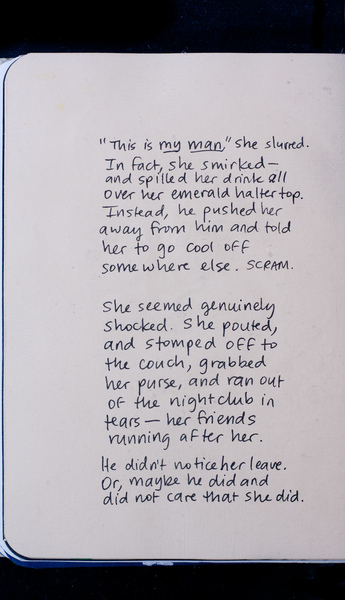 "This is my man," she slurred.
In fact, she smirked—
and spilled her drink all
over her emerald halter top.
Instead, he pushed her
away from him and told
her to go cool off
somewhere else. SCRAM.
She seemed genuinely
shocked. She pouted,
and stomped off to
the couch, grabbed
her purse, and ran out
of the nightclub in
tears— her friends
running after her.
He didn't notice her leave.
Or, maybe he did and
did not care that she did.